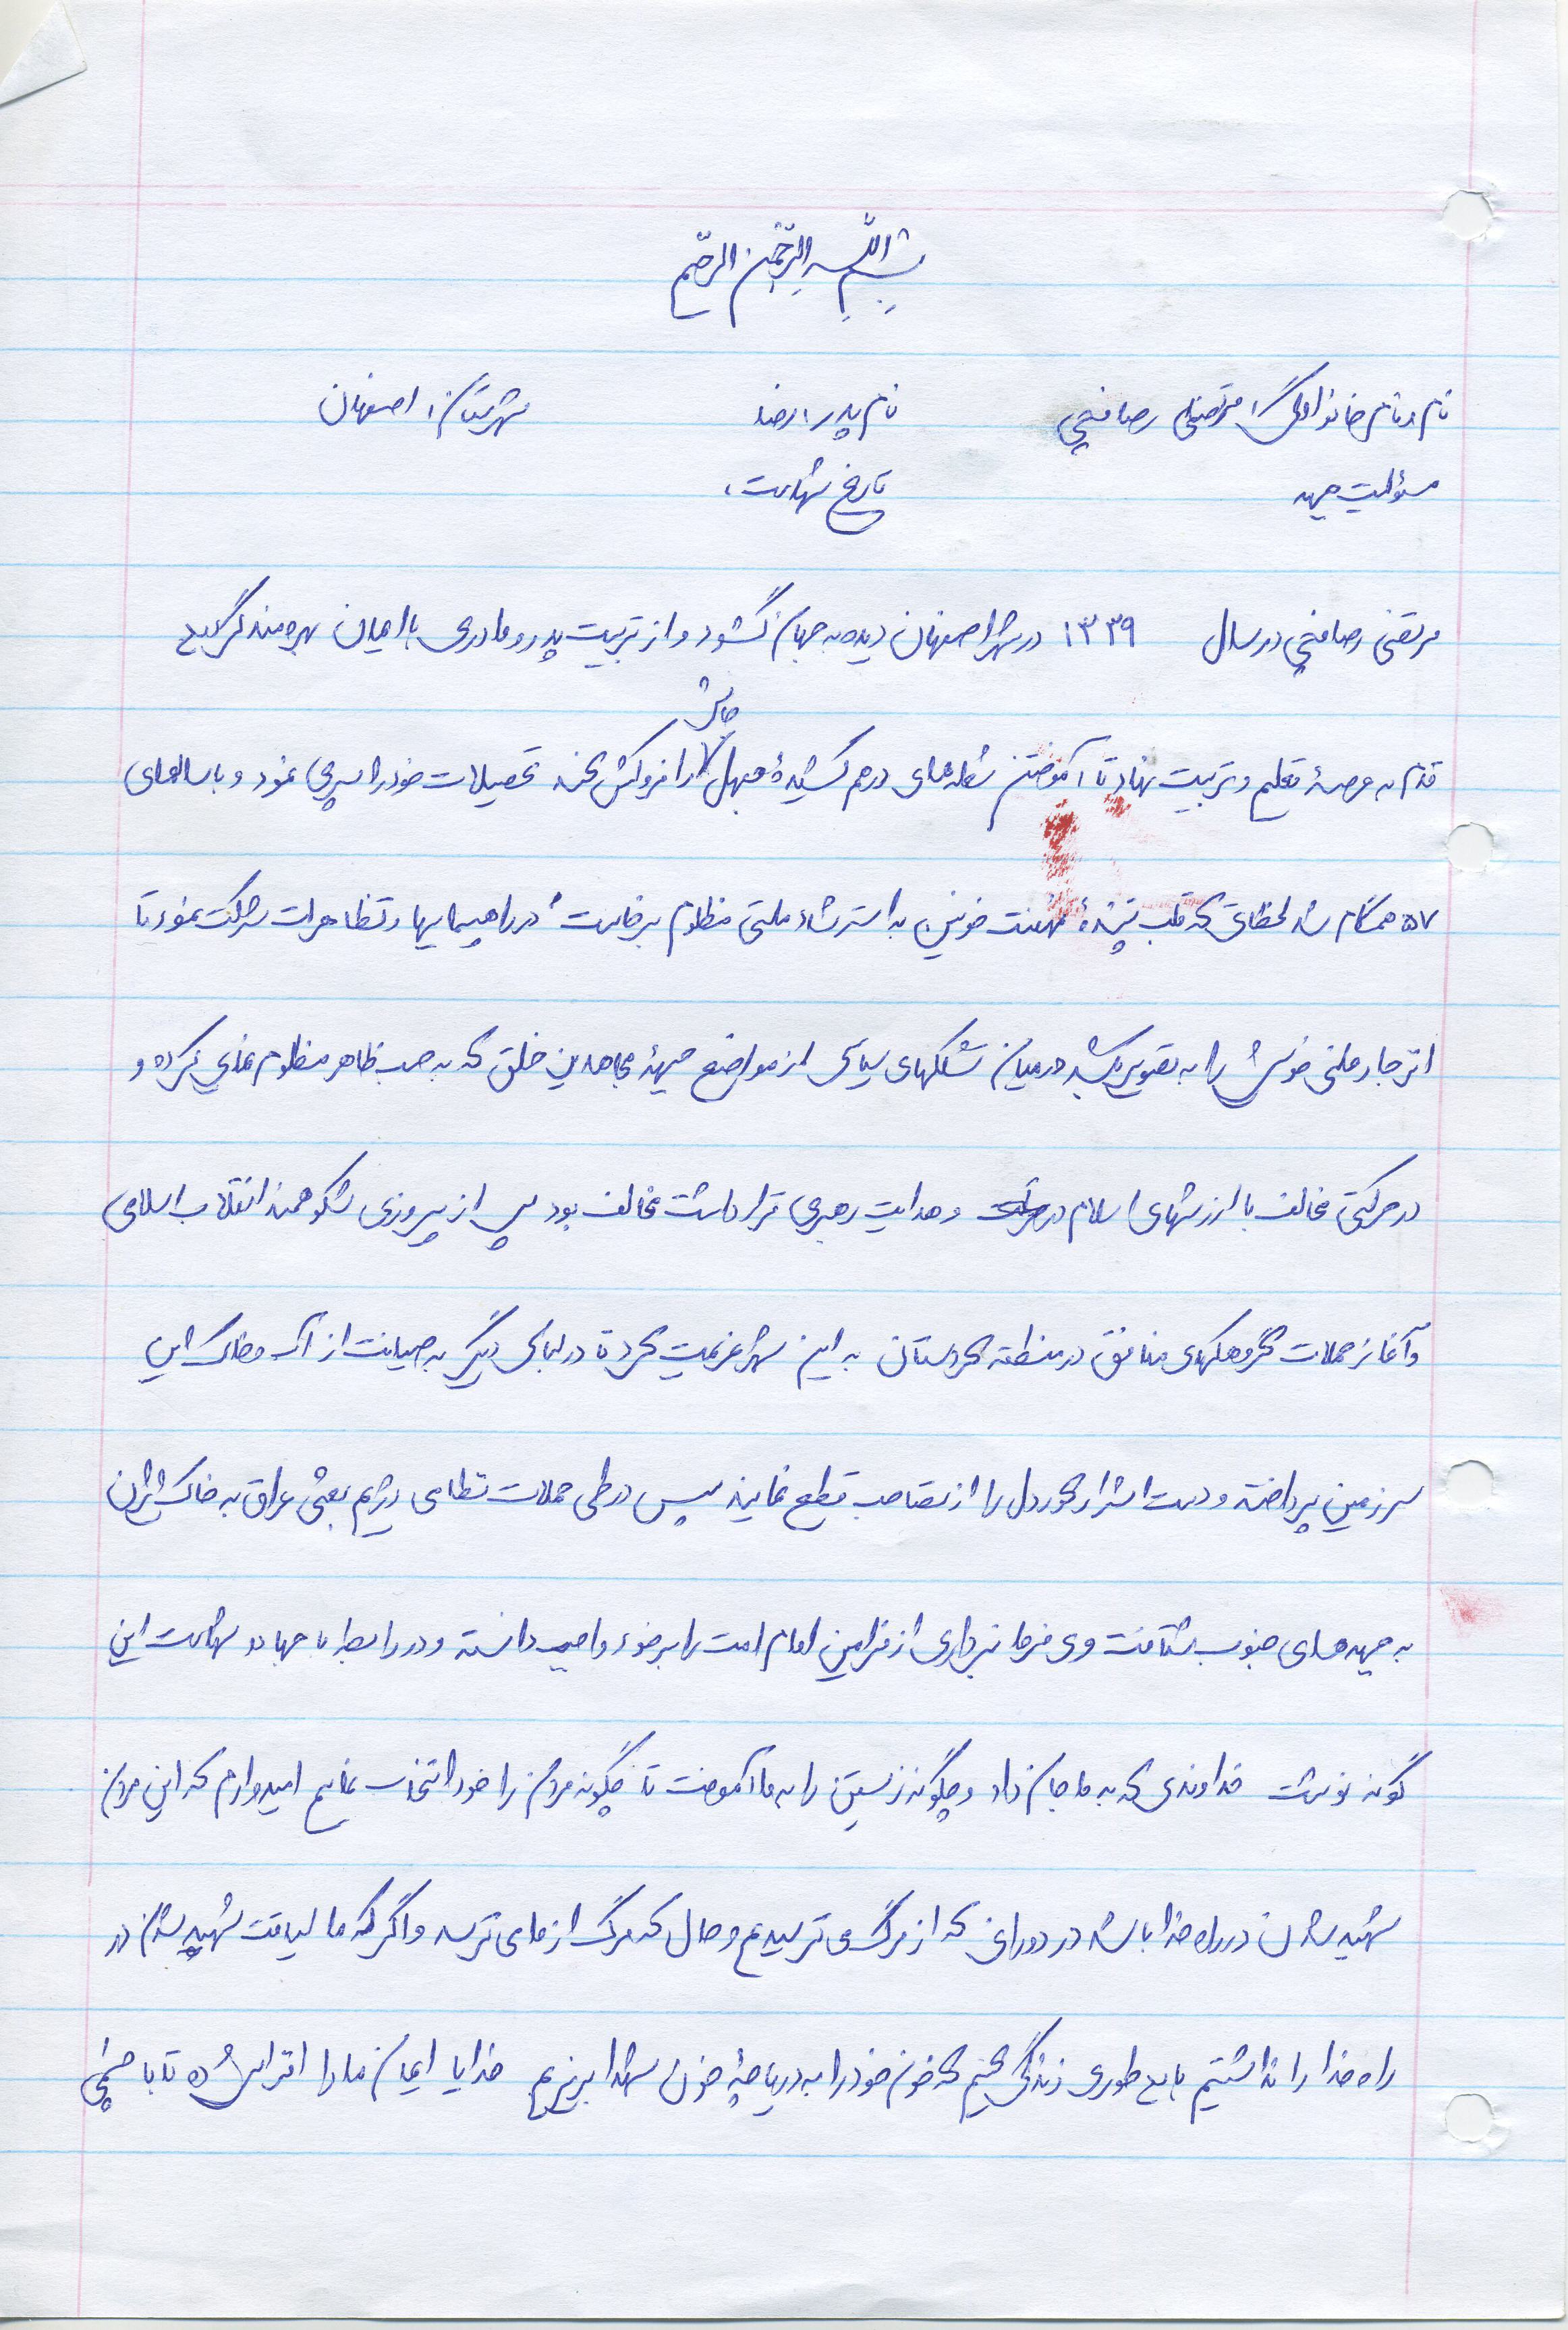 بسم الله الرحمن الرحیم
نام و نام خانوادگی: مرتضی رصافچی نام پدر: رضا شهرستان: اصفهان
مسئولیت جبهه تاریخ شهادت:
مرتضی رصافچی در سال ۱۳۳۹ در شهر اصفهان دیده به جهان گشود و از تربیت پدر و مادری با ایمان بهره‌مند گردید
جانش
قدم به عرصهٔ تعلیم و تربیت نهاد تا آموختن شعله‌های درهم کشیدهٔ جهل را فروکش کند تحصیلات خود را سپری نمود و با سالهای
۵۷ همگام شد لحظاتی که قلب تپندهٔ نهضت خونین به استرشاد ملتی مظلوم برخاست در راهپیمایها و تظاهرات شرکت نمود تا
انزجار ملی خویش را به تصویر بکشد در میان تشکلهای سیاسی از مواضع جبههٔ مجاهدین خلق که به حسب ظاهر مظلوم نمایی کرده و
در حرکتی مخالف با ارزشهای اسلام و هدایت رهبری قرار داشت مخالف بود پس از پیروزی شکوهمند انقلاب اسلامی
و آغاز حملات گروهکهای منافق در منطقه کردستان به این شهر عزیمت کرد تا در لباسی دیگر به صیانت از آب و خاک این
سرزمین پرداخته و دست اشرار کوردل را از تصاحب قطع نمایند سپس در طی حملات نظامی رژیم بعثی عراق به خاک ایران
به جبهه‌های جنوب شتافت وی فرمانبرداری از فرامین امام امت را بر خود واجب دانسته و در رابطه با جهاد و شهادت این
گونه نوشت خداوندی که به ما جان داد و چگونه زیستن را به ما آموخت تا چگونه مردن را خود انتخاب نمایم امیدوارم که این مردن
شهید شدن در راه خدا باشد در دورانی که از مرگ می ترسیدیم و حال که مرگ از ما می ترسد و اگر که ما لیاقت شهید شدن در
راه خدا را نداشتیم باید طوری زندگی کنیم که خون خود را به دریاچهٔ خون شهدا بریزیم خدایا ایمان ما را افزایش ده تا با